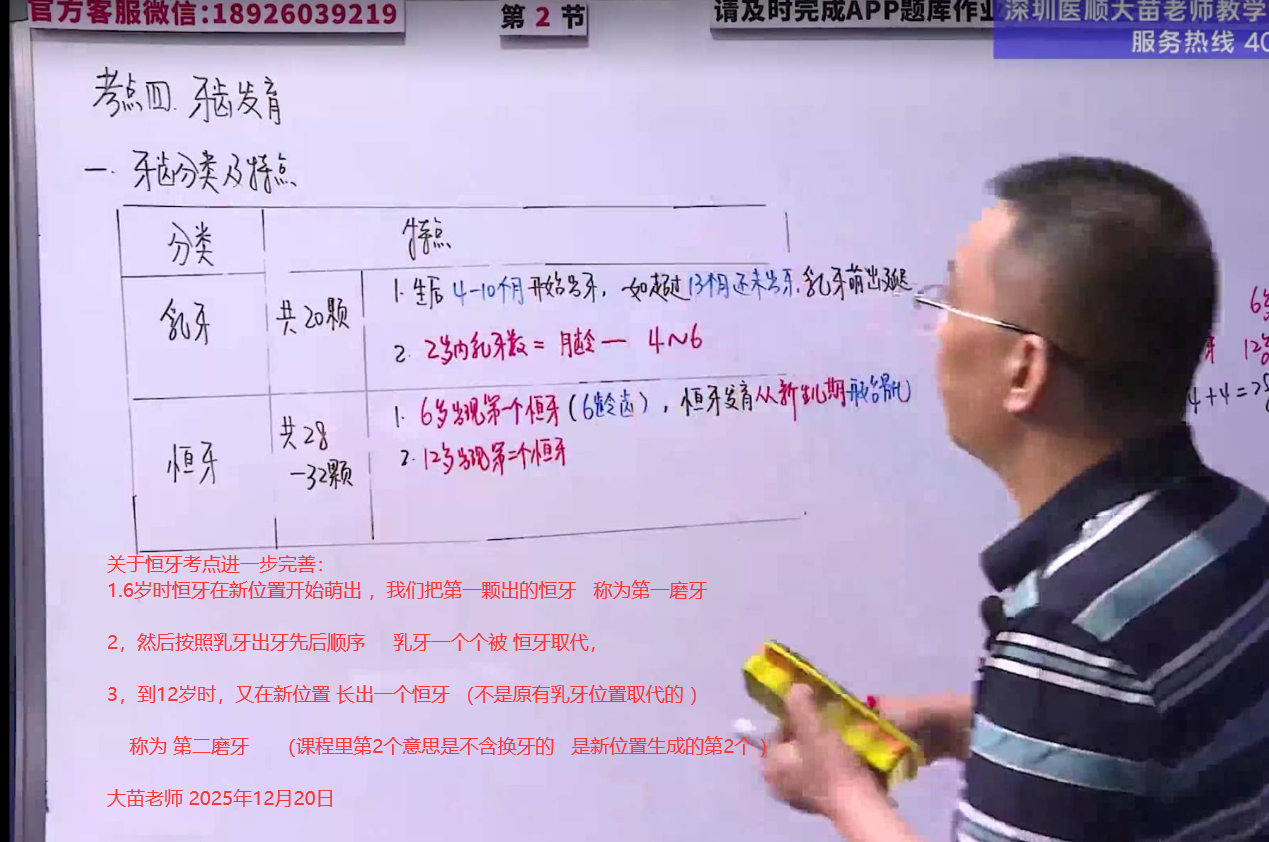 官方客服微信:18926039219
第 2 节
请及时完成APP题库作业
深圳医顺大苗老师教学
服务热线 40
考点四. 牙齿发育
一. 牙齿分类及特点
分类
特点
乳牙
共20颗
1. 生后4-10个月开始出牙, 如超过13个月还未出牙, 乳牙萌出延迟
2. 2岁内乳牙数 = 月龄 — 4~6
恒牙
共28
—32颗
1. 6岁出现第一个恒牙(6龄齿), 恒牙发育从新生儿期开始骨化
2. 12岁出现第二个恒牙
6岁
牙 12岁
4+4=28
关于恒牙考点进一步完善：
1.6岁时恒牙在新位置开始萌出 ，我们把第一颗出的恒牙 称为第一磨牙
2，然后按照乳牙出牙先后顺序 乳牙一个个被 恒牙取代，
3，到12岁时，又在新位置 长出一个恒牙 （不是原有乳牙位置取代的 ）
称为 第二磨牙 （课程里第2个意思是不含换牙的 是新位置生成的第2个 ）
大苗老师 2025年12月20日